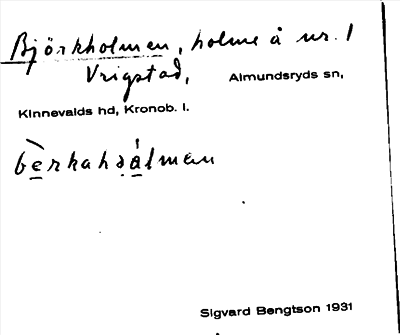 Björkholmen, holme å nr. 1
Vrigstad, Almundsryds sn,
Kinnevalds hd, Kronob. l.
Sigvard Bengtson 1931